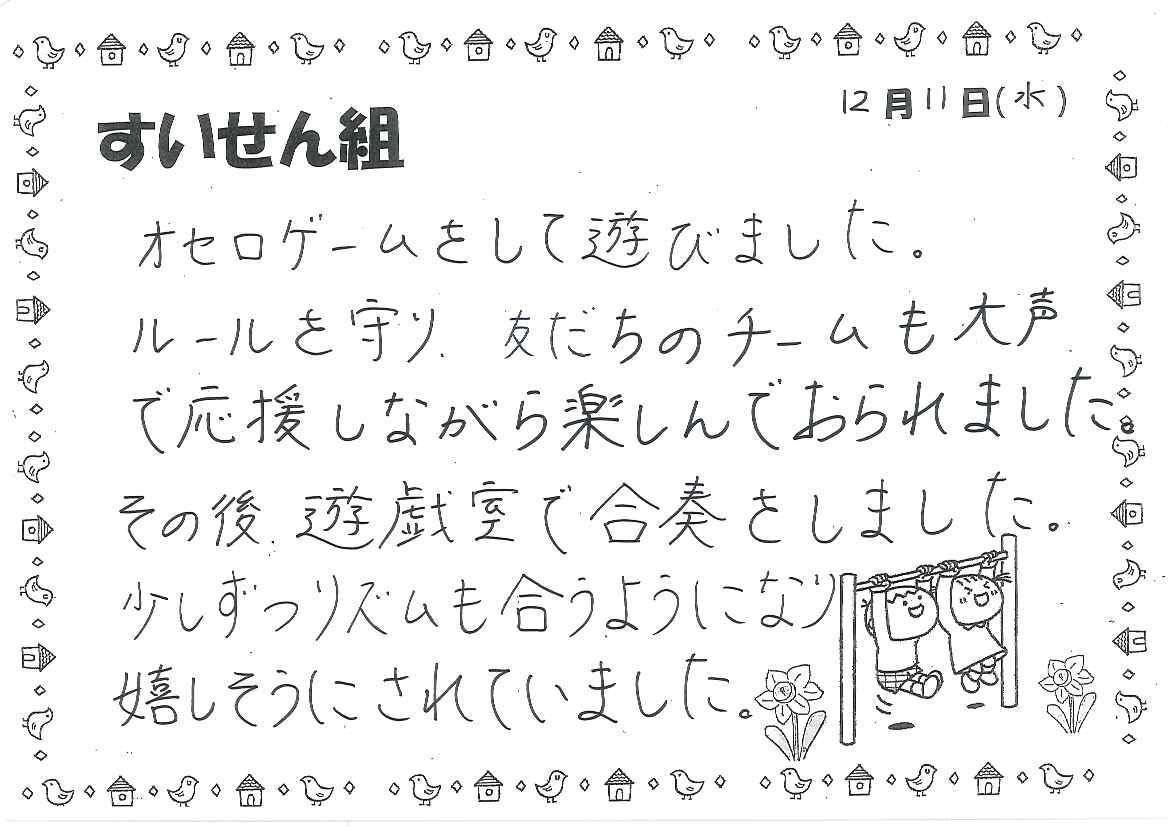 12月11日(水)
すいせん組
オセロゲームをして遊びました。
ルールを守り、友だちのチームも大声
で応援しながら楽しんでおられました。
その後、遊戯室で合奏をしました。
少しずつリズムも合うようになり
嬉しそうにされていました。